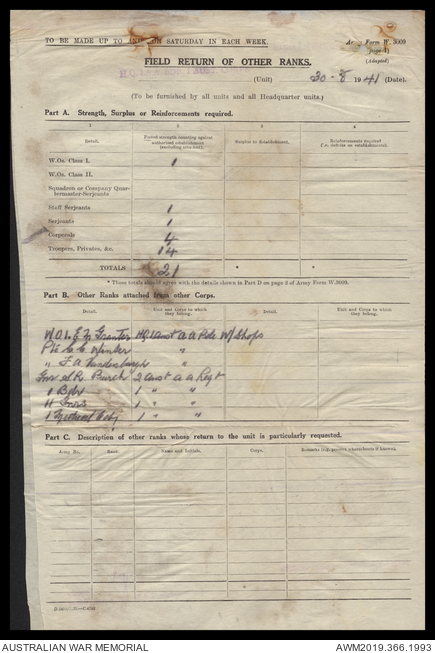 TO BE MADE UP TO AND ON SATURDAY IN EACH WEEK.
Army Form W. 3009
(page 1)
(Adapted)
FIELD RETURN OF OTHER RANKS.
(Unit) 30-8 1941 (Date).
(To be furnished by all units and all Headquarter units.)
Part A. Strength, Surplus or Reinforcements required.
1 2 3 4
Detail. Posted strength counting against authorized establishment (excluding attached). Surplus to Establishment. Reinforcements required (i.e. deficits on establishment).
W.Os. Class I. 1
W.Os. Class II.
Squadron or Company Quar-
termaster-Serjeants
Staff Serjeants 1
Serjeants 1
Corporals 4
Troopers, Privates, &c. 14
TOTALS 21 * *
* These totals should agree with the details shown in Part D on page 2 of Army Form W.3009.
Part B. Other Ranks attached from other Corps.
Detail. Unit and Corps to which they belong. Detail. Unit and Corps to which they belong.
W.O.1. E. J. HQ 1 Aust a a Bde W/Shops
Pte C. C. "
" F. A. "
Gnr S. R. Burch 2 Aust a a Regt
1 Bdr 1 " "
11 Gnrs 1 " "
1 1 " "
Part C. Description of other ranks whose return to the unit is particularly requested.
Army No. Rank. Name and Initials. Corps. Remarks (e.g. present whereabouts if known).
AUSTRALIAN WAR MEMORIAL
AWM2019.366.1993